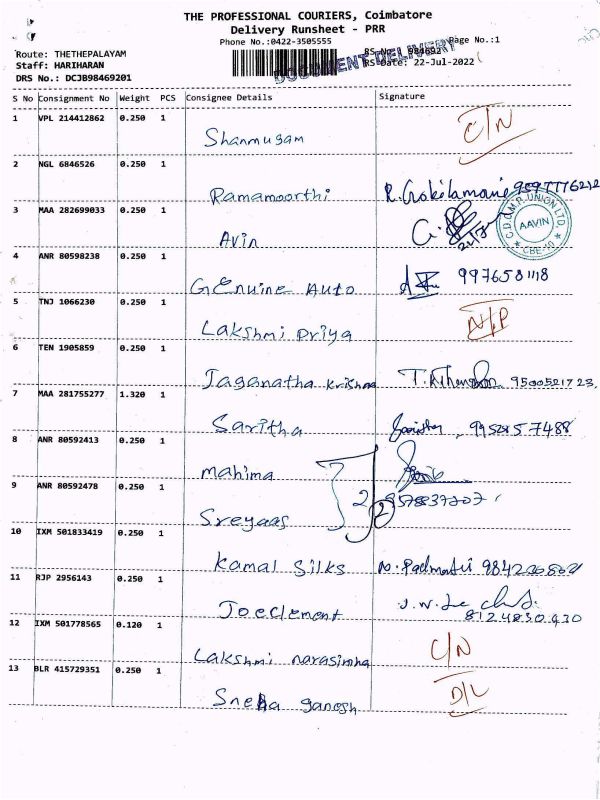 THE PROFESSIONAL COURIERS, Coimbatore
Delivery Runsheet - PRR
Phone No.:0422-3505555
Page No.:1
Route: THETHEPALAYAM
RS No.: 984692
Staff: HARIHARAN
RS Date: 22-Jul-2022
DOCUMENT DELIVERY
DRS No.: DCJB98469201
S No Consignment No Weight PCS Consignee Details Signature
1 VPL 214412862 0.250 1
Shanmugam C/N
2 NGL 6846526 0.250 1
Ramamoorthi R. Gokilamani
3 MAA 282699033 0.250 1
Avin
C.D.C.M.P. UNION LTD.
AAVIN
CBE-10
4 ANR 80598238 0.250 1
GEnuine Auto 9976581118
5 TNJ 1066230 0.250 1
Lakshmi Priya N/P
6 TEN 1905859 0.250 1
Jaganatha Krishna 9500521723
7 MAA 281755277 1.320 1
Saritha
8 ANR 80592413 0.250 1
mahima
9 ANR 80592478 0.250 1
2 2
Sreyaas
10 IXM 501833419 0.250 1
Kamal Silks
11 RJP 2956143 0.250 1
Joeclement
12 IXM 501778565 0.120 1
Lakshmi narasimha C/N
13 BLR 415729351 0.250 1
Sneha ganesh D/L